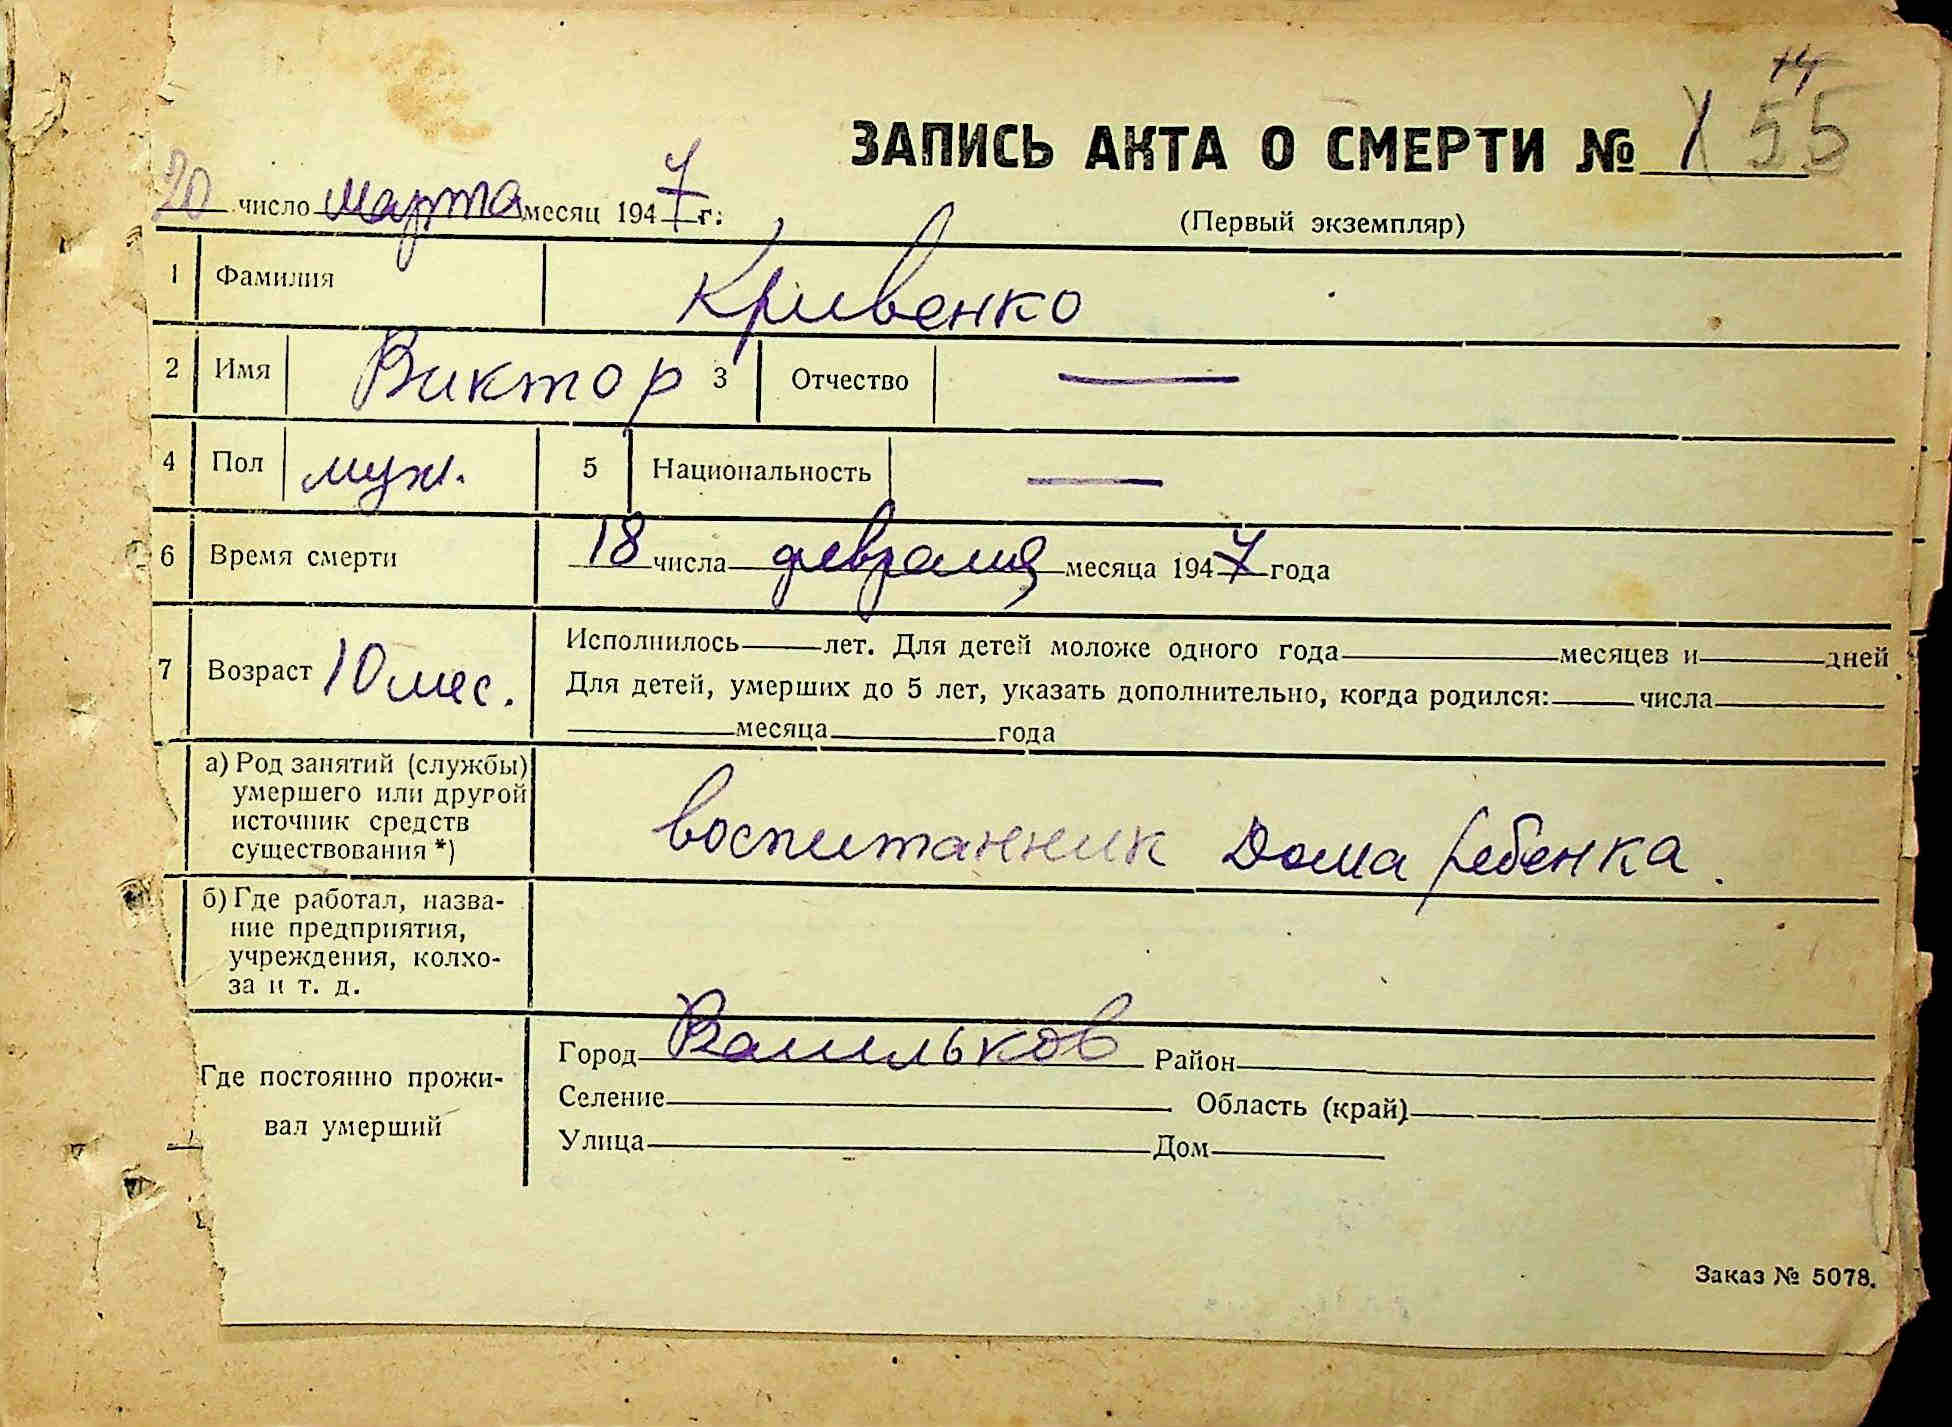 14
ЗАПИСЬ АКТА О СМЕРТИ № 1 55
20 число марта месяц 1947 г.
(Первый экземпляр)
1 Фамилия Кривенко
2 Имя Виктор 3 Отчество —
4 Пол муж. 5 Национальность —
6 Время смерти 18 числа февраля месяца 1947 года
7 Возраст 10 мес.
Исполнилось лет. Для детей моложе одного года месяцев и дней
Для детей, умерших до 5 лет, указать дополнительно, когда родился: числа
месяца года
а) Род занятий (службы)
умершего или другой
источник средств
существования *)
воспитанник Дома ребенка.
б) Где работал, назва-
ние предприятия,
учреждения, колхо-
за и т. д.
Где постоянно прожи-
вал умерший
Город Васильков Район
Селение Область (край)
Улица Дом
Заказ № 5078.